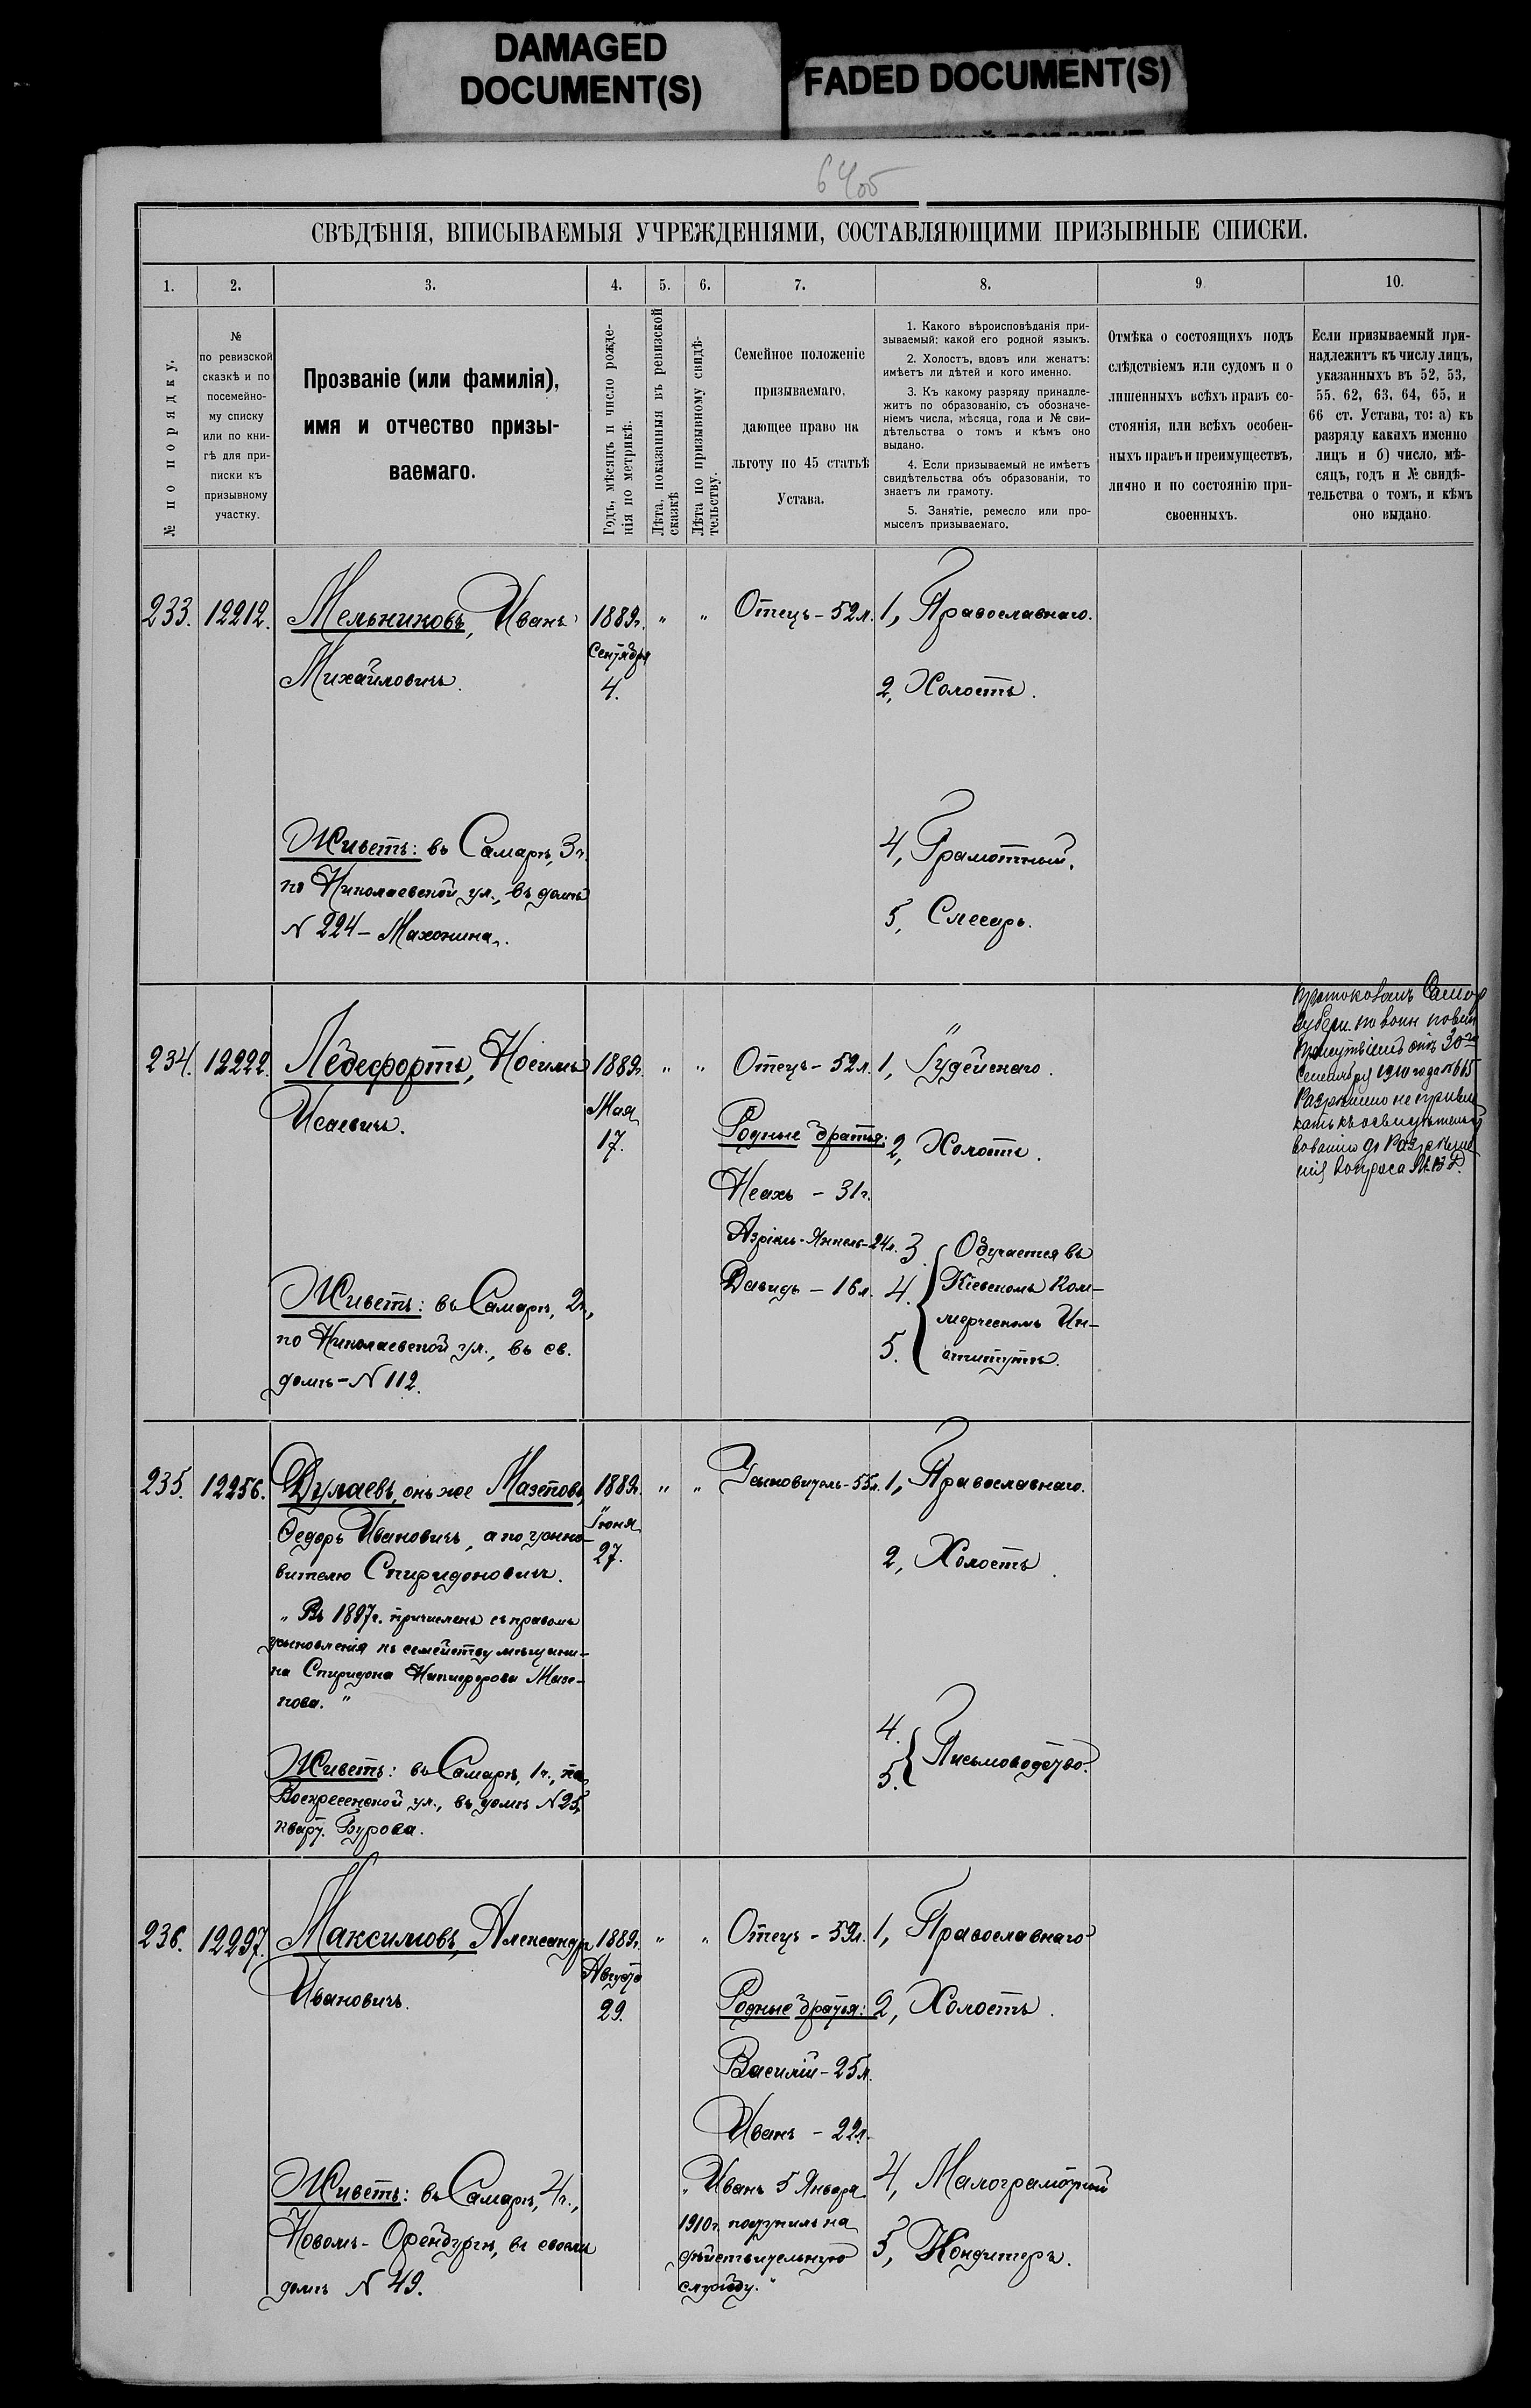 DAMAGED
DOCUMENT(S)
FADED DOCUMENT(S)
64об
СВѢДѢНІЯ, ВПИСЫВАЕМЫЯ УЧРЕЖДЕНІЯМИ, СОСТАВЛЯЮЩИМИ ПРИЗЫВНЫЕ СПИСКИ.
1. 2. 3. 4. 5. 6. 7. 8. 9. 10.
№ по порядку.
№
по ревизской
сказкѣ и по
посемейно-
му списку
или по кни-
гѣ для при-
писки къ
призывному
участку.
Прозваніе (или фамилія),
имя и отчество призы-
ваемаго.
Годъ, мѣсяцъ и число рожде-
нія по метрикѣ.
Лѣта, показанныя въ ревизской
сказкѣ
Лѣта по призывному свидѣ-
тельству.
Семейное положеніе
призываемаго,
дающее право на
льготу по 45 статьѣ
Устава.
1. Какого вѣроисповѣданія при-
зываемый: какой его родной языкъ.
2. Холостъ, вдовъ или женатъ:
имѣетъ ли дѣтей и кого именно.
3. Къ какому разряду принадле-
житъ по образованію, съ обозначе-
ніемъ числа, мѣсяца, года и № сви-
дѣтельства о томъ и кѣмъ оно
выдано.
4. Если призываемый не имѣетъ
свидѣтельства объ образованіи, то
знаетъ ли грамоту.
5. Занятіе, ремесло или про-
мыселъ призываемаго.
Отмѣка о состоящихъ подъ
слѣдствіемъ или судомъ и о
лишенныхъ всѣхъ правъ со-
стоянія, или всѣхъ особен-
ныхъ правъ и преимуществъ,
лично и по состоянію при-
своенныхъ.
Если призываемый при-
надлежитъ къ числу лицъ,
указанныхъ въ 52, 53,
55, 62, 63, 64, 65, и
66 ст. Устава, то: а) къ
разряду какихъ именно
лицъ и б) число, мѣ-
сяцъ, годъ и № свидѣ-
тельства о томъ, и кѣмъ
оно выдано.
233. 12212. Мельниковъ, Иванъ 1889г. " " Отецъ - 52л. 1, Православнаго.
Сентября
Михайловичъ. 4. 2, Холостъ.
Живетъ: въ Самарѣ, 3ч. 4, Грамотный.
по Николаевской ул., въ домѣ
N 224 - Махонина. 5, Слесарь.
234. 12222. Ледесфортъ, Носимъ 1889г. " " Отецъ - 52л. 1, Іудейскаго.
Исаевичъ. Мая
17. Родные братья: 2, Холостъ.
Неахъ - 31г.
Азріилъ-Янкель - 24л. 3. Обучается въ
Давидъ - 16л. 4. Кіевскомъ Ком-
мерческомъ Ин-
5. ститутѣ.
Живетъ: въ Самарѣ, 2ч.,
по Николаевской ул., въ св.
домѣ - N 112.
Протоколомъ Самар
Губерн. по воин повин
Присутствія отъ 30го
Сентября 1910 года № 65
Разрѣшено не привле
кать къ освидѣтельст
вованію до Разрѣше
нія вопроса М.В.Д.
235. 12256. Дулаевъ, онъ же Мазеповъ, 1889г. " " Усыновитель - 55л. 1, Православнаго.
Федоръ Ивановичъ, а по усыно- Іюня
вителю Спиридоновичъ. 27. 2, Холостъ.
„ Въ 1897г. причисленъ съ правомъ
усыновленія къ семейству мѣщани-
на Спиридона Никифорова Мазе-
пова. "
4.
5. Письмоводство.
Живетъ: въ Самарѣ, 1ч., по
Воскресенской ул., въ домѣ N 25,
кварт. Бурова.
236. 12297. Максимовъ, Александръ 1889г. " " Отецъ - 59л. 1, Православнаго
Августа
Ивановичъ. 29. Родные братья: 2, Холостъ.
Василій - 25л.
Иванъ - 22л.
„Иванъ 5 Января 4, Малограмотный
1910г. поступилъ на
дѣйствительную 5, Кондитеръ.
службу."
Живетъ: въ Самарѣ, 4ч.,
Новомъ-Оренбургѣ, въ своемъ
домѣ N 49.